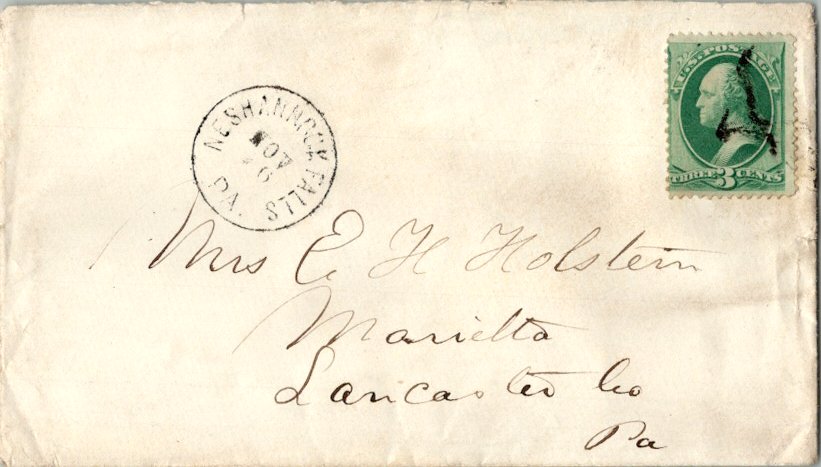 U.S. POSTAGE
THREE 3 CENTS
NESHANNOCK FALLS
NOV
PA.
Mrs E H Holstein
Marietta
Lancaster Co
Pa